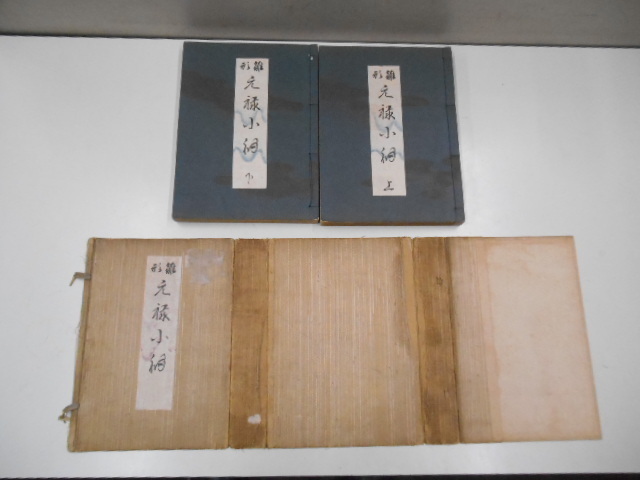 雛形 元禄小袖 上
雛形 元禄小袖 下
雛形 元禄小袖